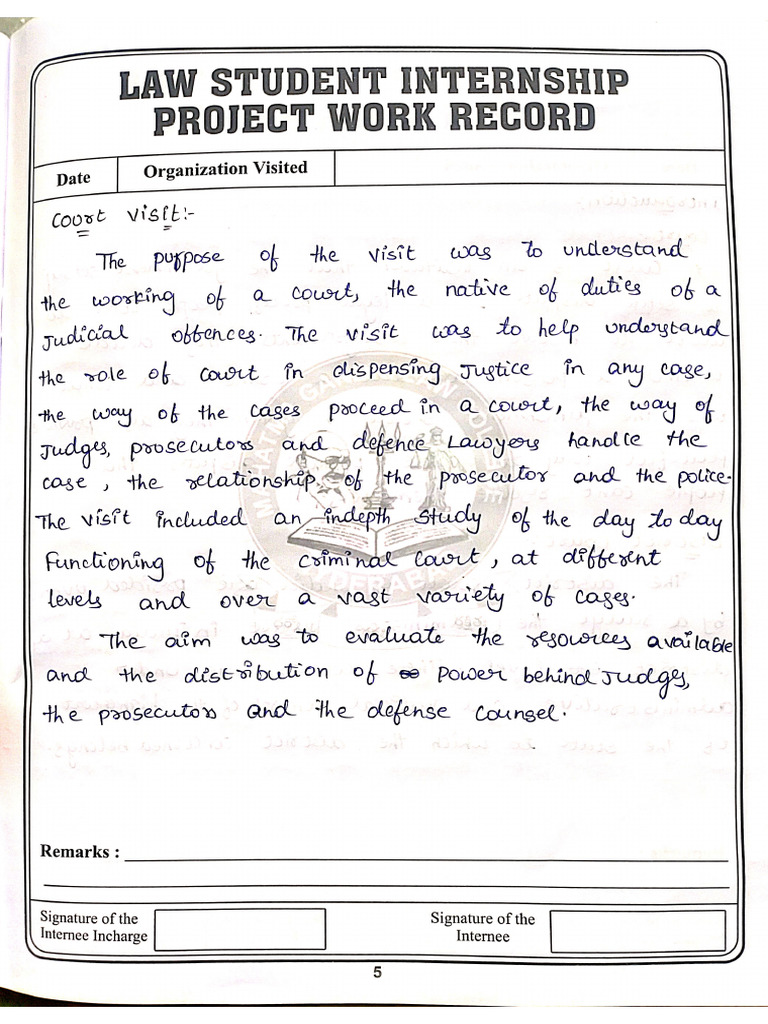 LAW STUDENT INTERNSHIP
PROJECT WORK RECORD
Date
Organization Visited
Court Visit:-
The purpose of the visit was to understand
the working of a court, the native of duties of a
Judicial offences. The visit was to help understand
the role of court in dispensing Justice in any case,
the way of the cases proceed in a court, the way of
Judges, prosecutors and defence Lawyers handle the
case, the relationship of the prosecutor and the police.
The visit included an indepth study of the day to day
Functioning of the criminal court, at different
levels and over a vast variety of cases.
The aim was to evaluate the resources available
and the distribution of power behind Judges,
the prosecutors and the defense counsel.
Remarks :
Signature of the
Internee Incharge
Signature of the
Internee
5